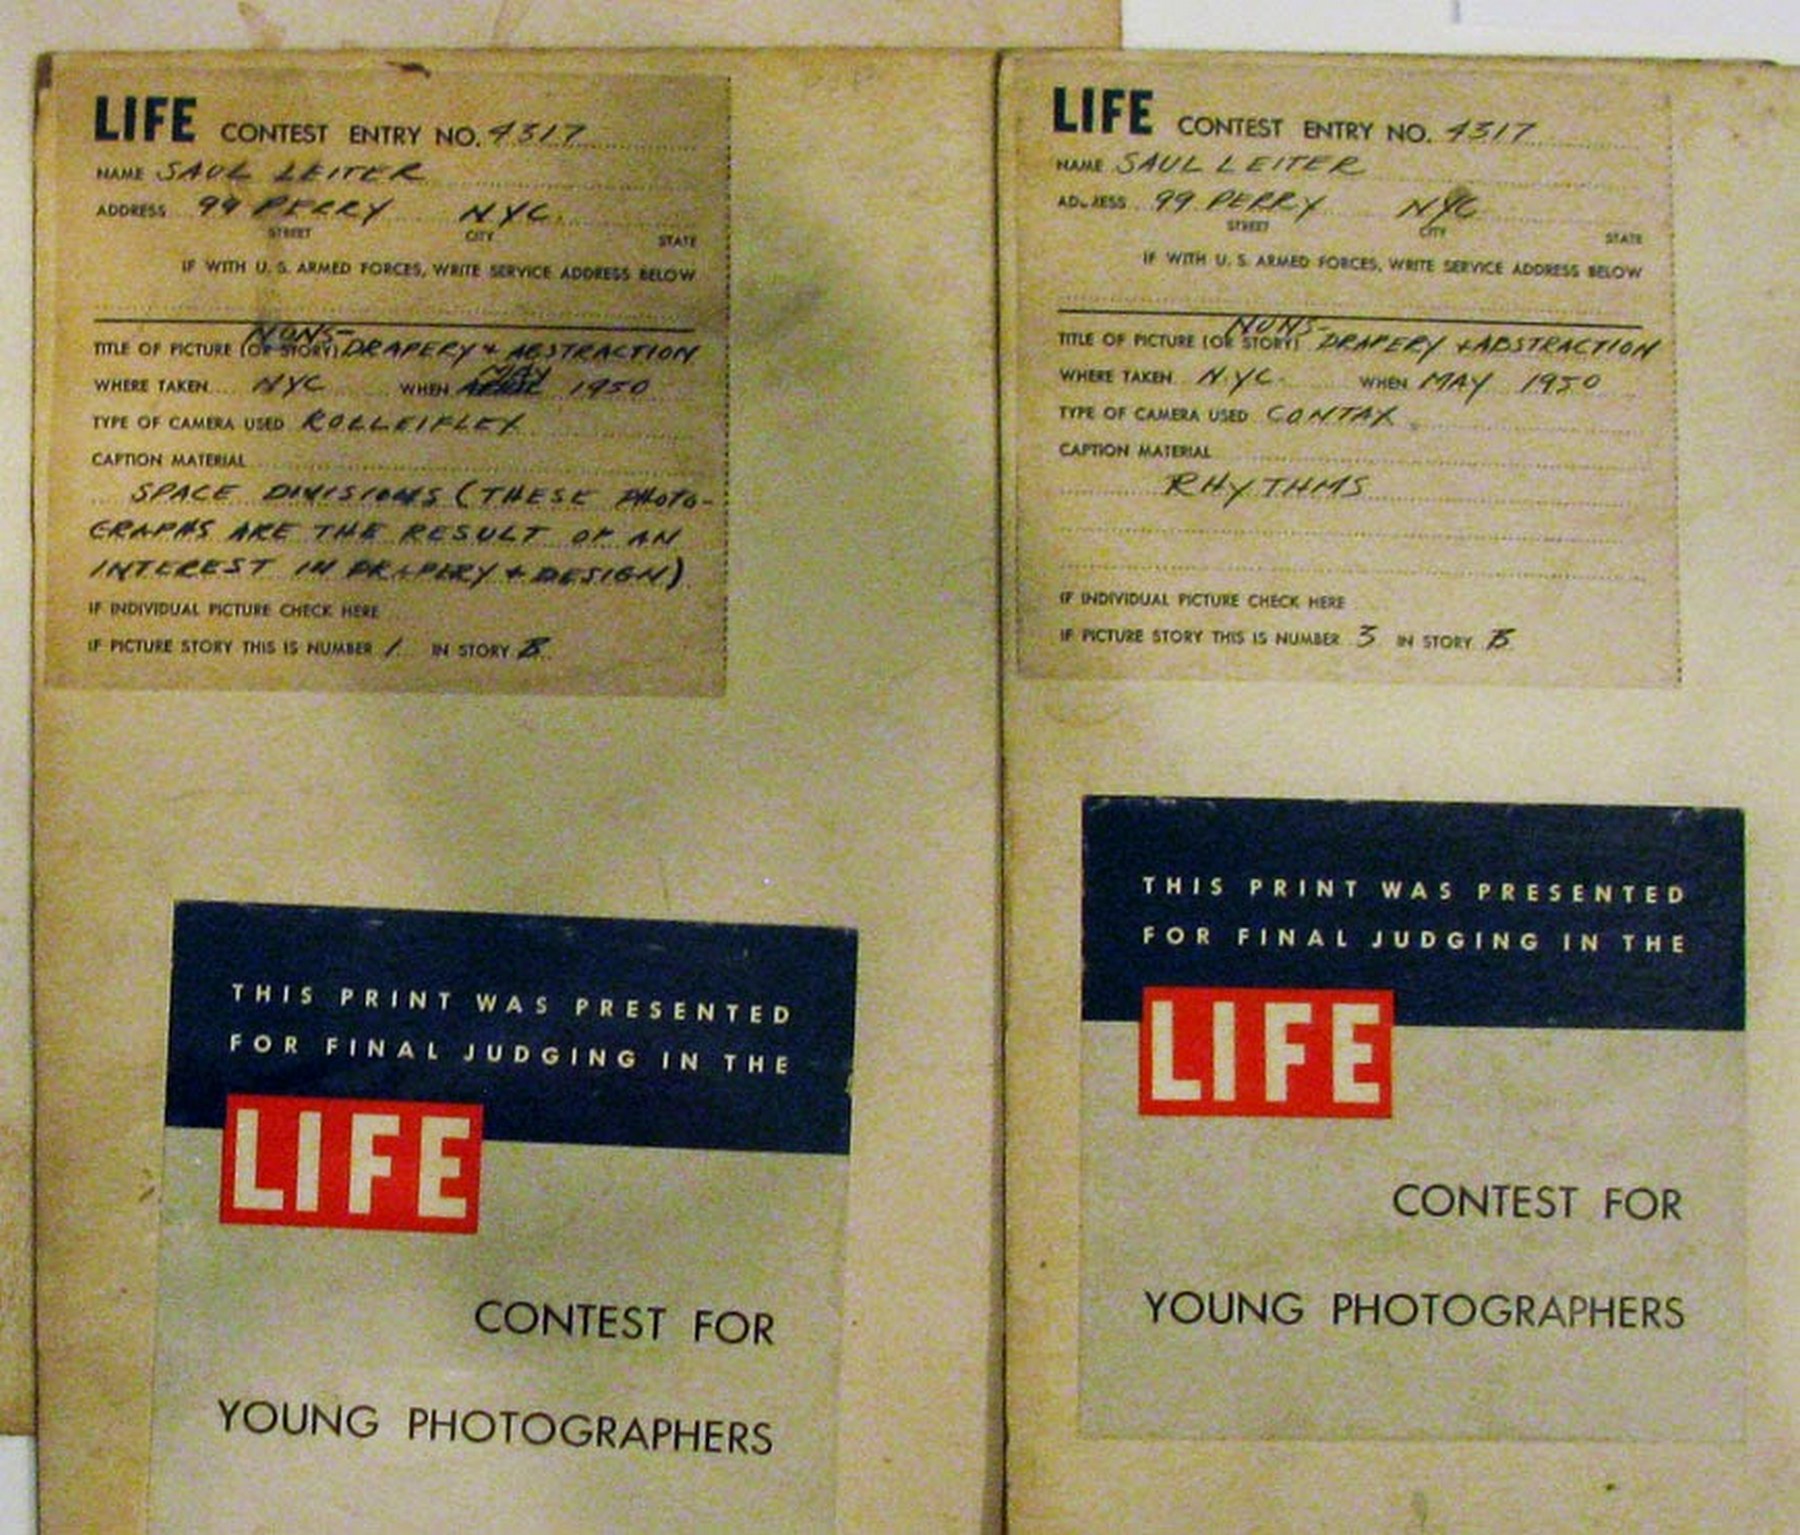 LIFE CONTEST ENTRY NO. 4317
NAME SAUL LEITER
ADDRESS 99 PERRY NYC.
STREET CITY STATE
IF WITH U. S. ARMED FORCES, WRITE SERVICE ADDRESS BELOW
NUNS-
TITLE OF PICTURE (OR STORY) DRAPERY + ABSTRACTION
MAY
WHERE TAKEN NYC WHEN APRIL 1950
TYPE OF CAMERA USED ROLLEIFLEX
CAPTION MATERIAL
SPACE DIVISIONS (THESE PHOTO-
GRAPHS ARE THE RESULT OF AN
INTEREST IN DRAPERY + DESIGN)
IF INDIVIDUAL PICTURE CHECK HERE
IF PICTURE STORY THIS IS NUMBER 1 IN STORY B
THIS PRINT WAS PRESENTED
FOR FINAL JUDGING IN THE
LIFE
CONTEST FOR
YOUNG PHOTOGRAPHERS
LIFE CONTEST ENTRY NO. 4317
NAME SAUL LEITER
ADDRESS 99 PERRY NYC
STREET CITY STATE
IF WITH U. S. ARMED FORCES, WRITE SERVICE ADDRESS BELOW
NUNS-
TITLE OF PICTURE (OR STORY) DRAPERY + ABSTRACTION
WHERE TAKEN N.Y.C. WHEN MAY 1950
TYPE OF CAMERA USED CONTAX
CAPTION MATERIAL
RHYTHMS
IF INDIVIDUAL PICTURE CHECK HERE
IF PICTURE STORY THIS IS NUMBER 3 IN STORY B
THIS PRINT WAS PRESENTED
FOR FINAL JUDGING IN THE
LIFE
CONTEST FOR
YOUNG PHOTOGRAPHERS